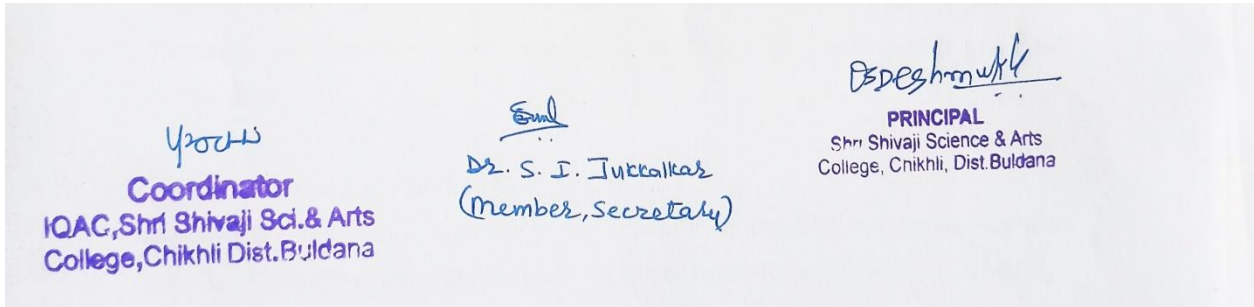 Coordinator
IQAC,Shri Shivaji Sci.& Arts
College,Chikhli Dist.Buldana
Dr. S. I. Jukkalkar
(Member, Secretary)
PSDeshmukh
PRINCIPAL
Shri Shivaji Science & Arts
College, Chikhli, Dist.Buldana